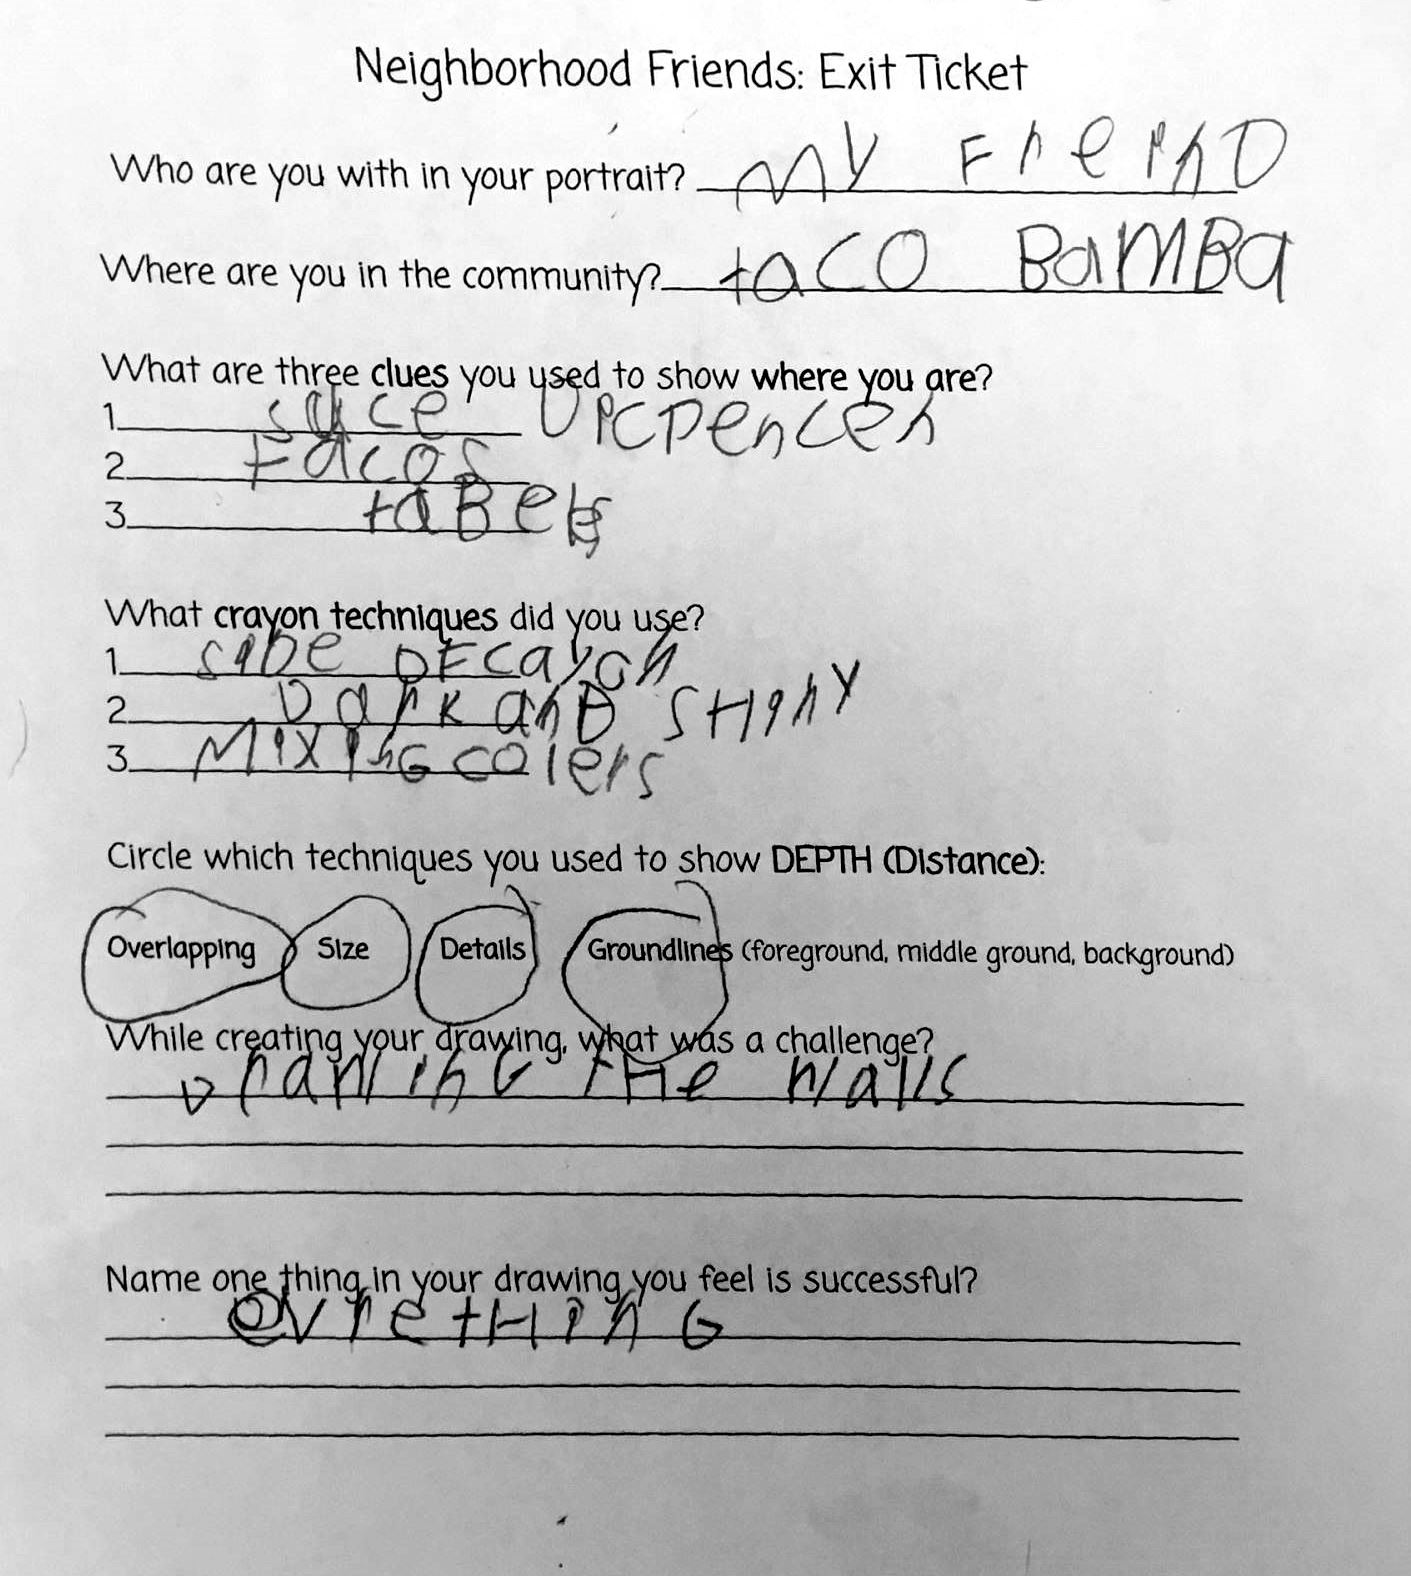 Neighborhood Friends: Exit Ticket
Who are you with in your portrait? My FreinD
Where are you in the community? taco BaMBa
What are three clues you used to show where you are?
1. sace
2. tacos
3. taBels
What crayon techniques did you use?
1. siDe OF cayon
2. Dark anD SHiny
3. MixinG colers
Circle which techniques you used to show DEPTH (Distance):
Overlapping Size Details Groundlines (foreground, middle ground, background)
While creating your drawing, what was a challenge?
DrawinG tHe walls
Name one thing in your drawing you feel is successful?
evretHinG